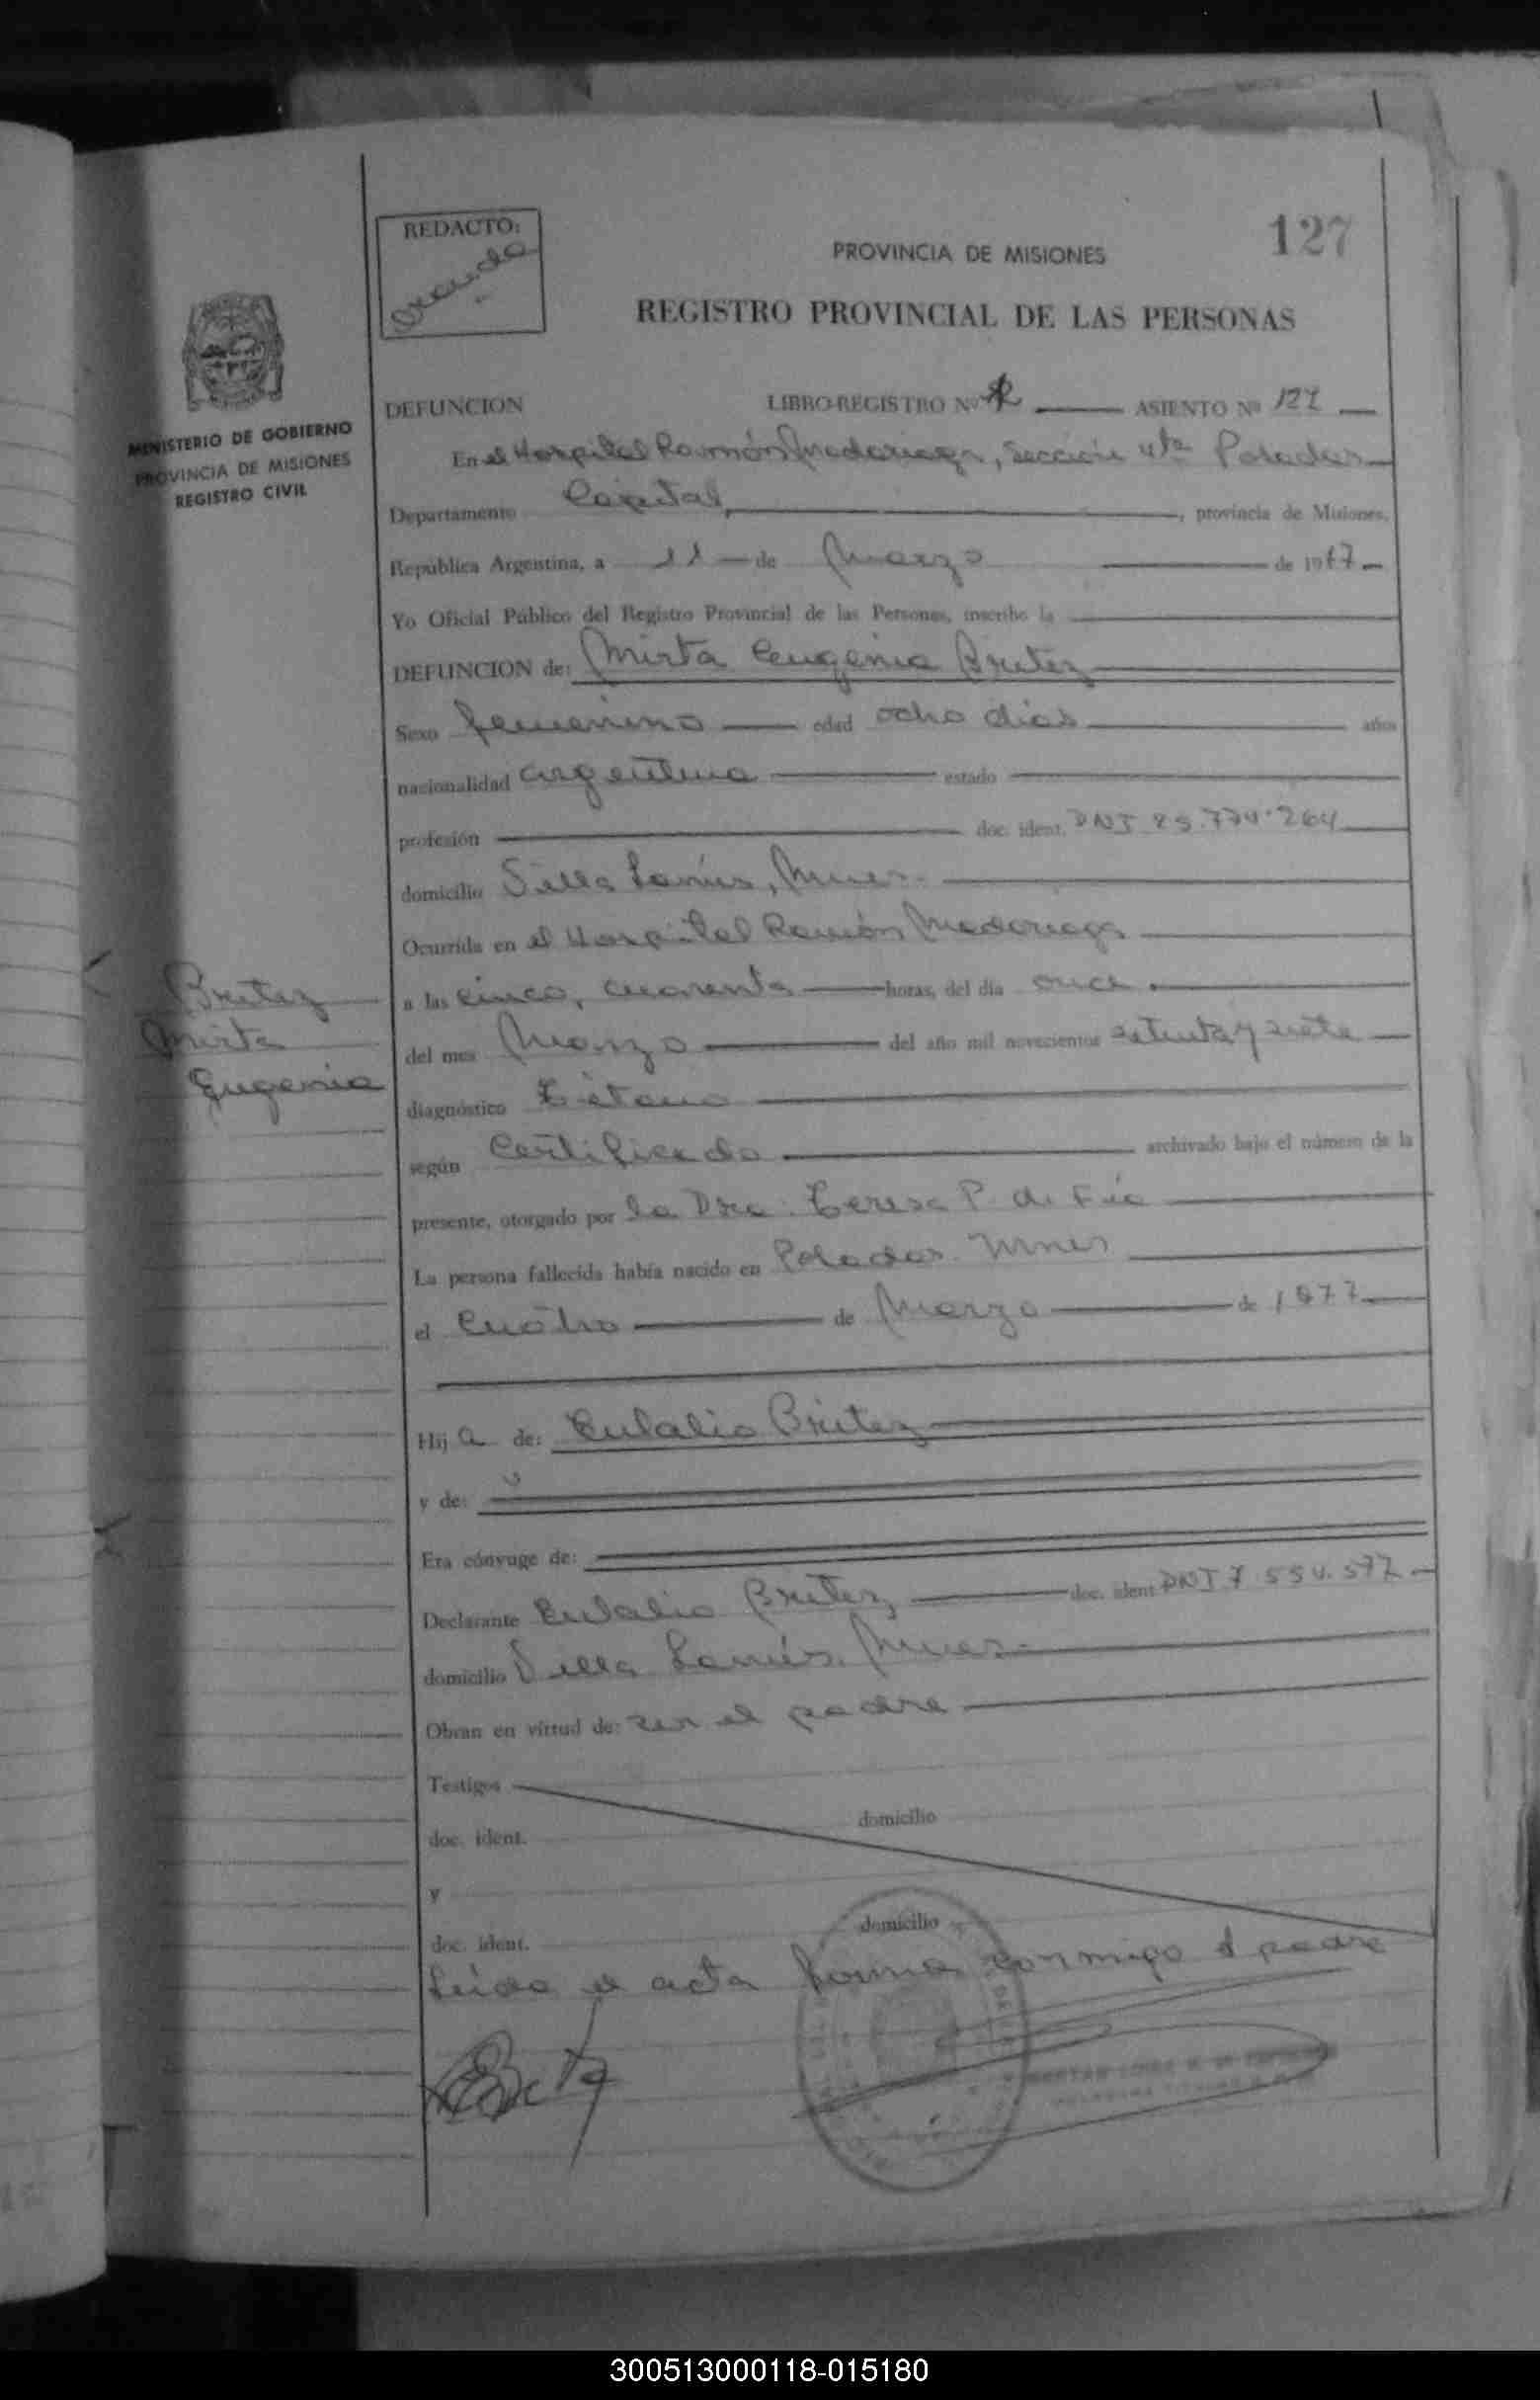 127
REDACTO:
PROVINCIA DE MISIONES
REGISTRO PROVINCIAL DE LAS PERSONAS
MINISTERIO DE GOBIERNO
PROVINCIA DE MISIONES
REGISTRO CIVIL
DEFUNCION LIBRO-REGISTRO Nº ASIENTO Nº 127
En el Hospital Ramón Madariaga, Sección 4ta Posadas
Departamento Capital, provincia de Misiones,
República Argentina, a 11 de Marzo de 1977
Yo Oficial Público del Registro Provincial de las Personas, inscribo la
DEFUNCION de: Mirta Eugenia Britez
Sexo femenino edad ocho días años
nacionalidad argentina estado
profesión doc. ident. DNI 25.774.264
domicilio Villa Lanús, Mnes.
Ocurrida en el Hospital Ramón Madariaga
a las cinco, cuarenta horas, del día once
del mes Marzo del año mil novecientos setenta y siete
diagnóstico Tétano
según Certificado archivado bajo el número de la
presente, otorgado por la Dra. Teresa P. de
La persona fallecida había nacido en Posadas. Mnes
el cuatro de Marzo de 1977
Hija de: Eulalio Britez
y de:
Era cónyuge de:
Declarante Eulalio Britez doc. ident. DNI 7.554.577
domicilio Villa Lanús. Mnes.
Obran en virtud de: ser el padre
Testigos
domicilio
doc. ident.
y
domicilio
doc. ident.
Leída el acta firma conmigo el padre
Britez
Mirta
Eugenia
300513000118-015180